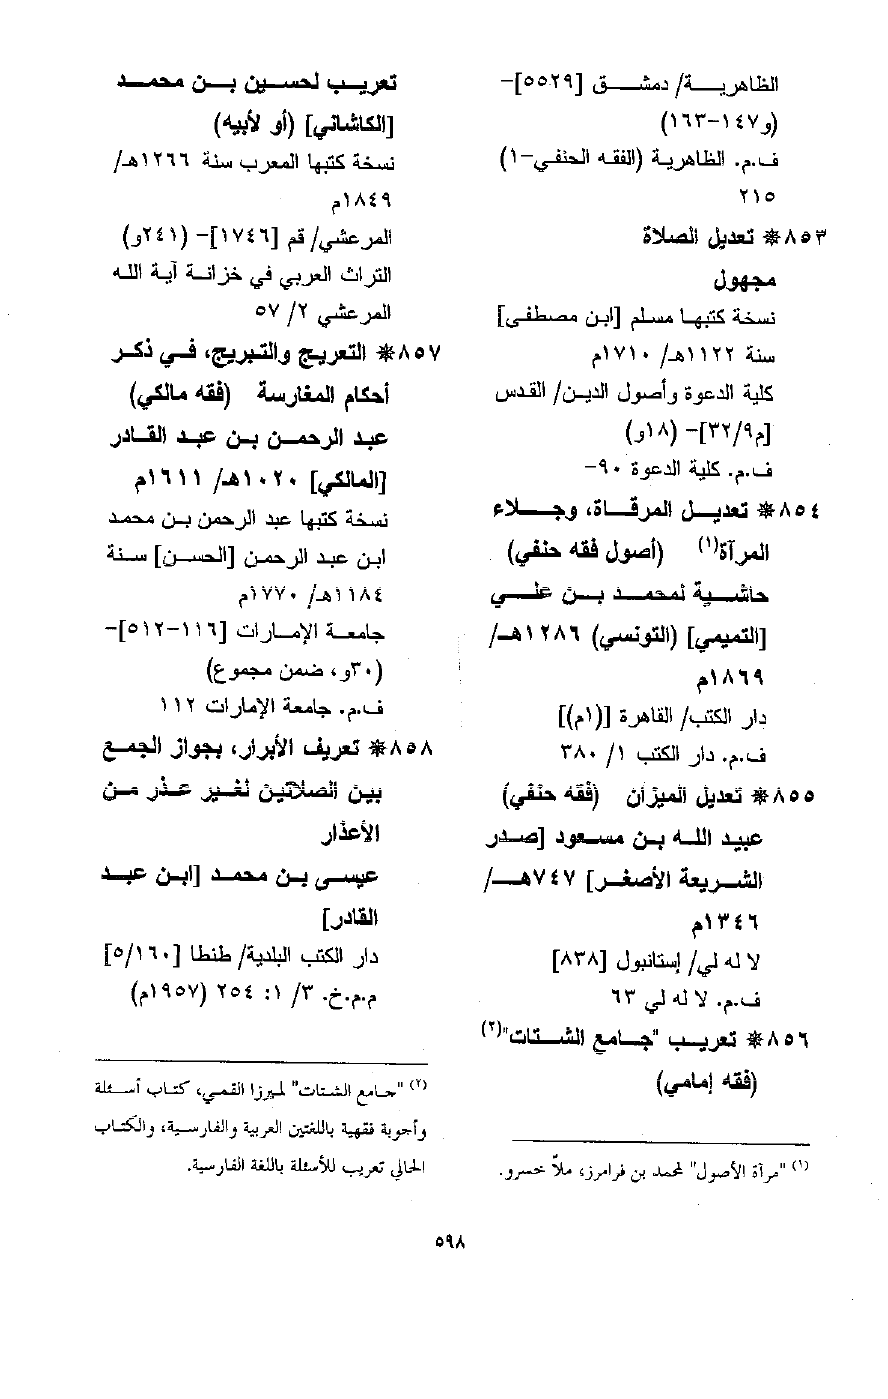 الظاهرية/ دمشق [٥٥٢٩]-
(و١٤٧-١٦٣)
ف.م. الظاهرية (الفقه الحنفي-١)
٢١٥
٨٥٣* تعديل الصلاة
مجهول
نسخة كتبها مسلم [ابن مصطفى]
سنة ١١٢٢هـ/ ١٧١٠م
كلية الدعوة وأصول الدين/ القدس
[م٣٢/٩]- (١٨و)
ف.م. كلية الدعوة ٩٠-
٨٥٤* تعديل المرقاة، وجلاء
المرآة(١) (أصول فقه حنفي)
حاشية لمحمد بن علي
[التميمي] (التونسي) ١٢٨٦هـ/
١٨٦٩م
دار الكتب/ القاهرة [(١م)]
ف.م. دار الكتب ١/ ٣٨٠
٨٥٥* تعديل الميزان (فقه حنفي)
عبيد الله بن مسعود [صدر
الشريعة الأصغر] ٧٤٧هـ/
١٣٤٦م
لا له لي/ إستانبول [٨٣٨]
ف.م. لا له لي ٦٣
٨٥٦* تعريب "جامع الشتات"(٢)
(فقه إمامي)
(١) "مرآة الأصول" لمحمد بن فرامرز، ملاّ خسرو.
تعريب لحسين بن محمد
[الكاشاني] (أو لأبيه)
نسخة كتبها المعرب سنة ١٢٦٦هـ/
١٨٤٩م
المرعشي/ قم [١٧٤٦]- (٢٤١و)
التراث العربي في خزانة آية الله
المرعشي ٢/ ٥٧
٨٥٧* التعريج والتبريج، في ذكر
أحكام المغارسة (فقه مالكي)
عبد الرحمن بن عبد القادر
[المالكي] ١٠٢٠هـ/ ١٦١١م
نسخة كتبها عبد الرحمن بن محمد
ابن عبد الرحمن [الحسن] سنة
١١٨٤هـ/ ١٧٧٠م
جامعة الإمارات [١١٦-٥١٢]-
(٣٠و، ضمن مجموع)
ف.م. جامعة الإمارات ١١٢
٨٥٨* تعريف الأبرار، بجواز الجمع
بين الصلاتين لغير عذر من
الأعذار
عيسى بن محمد [ابن عبد
القادر]
دار الكتب البلدية/ طنطا [٥/١٦٠]
م.م.خ. ٣/ ١: ٢٥٤ (١٩٥٧م)
(٢) "جامع الشتات" لميرزا القمي، كتاب أسئلة
وأجوبة فقهية باللغتين العربية والفارسية، والكتاب
الحالي تعريب للأسئلة باللغة الفارسية.
٥٩٨